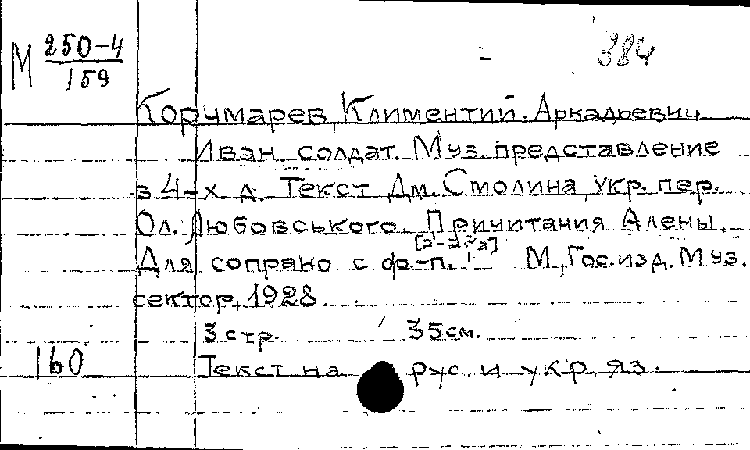 М 250-4/159
384
Корчмарев, Климентий Аркадьевич
Иван солдат. Муз. представление
в 4-х д. Текст Дм. Смолина, укр. пер.
Ол. Любовського. Причитания Алены.
Для сопрано с ф-п. М., Гос. изд. Муз.
сектор, 1928.
3 стр. 35 см.
160 Текст на рус. и укр. яз.